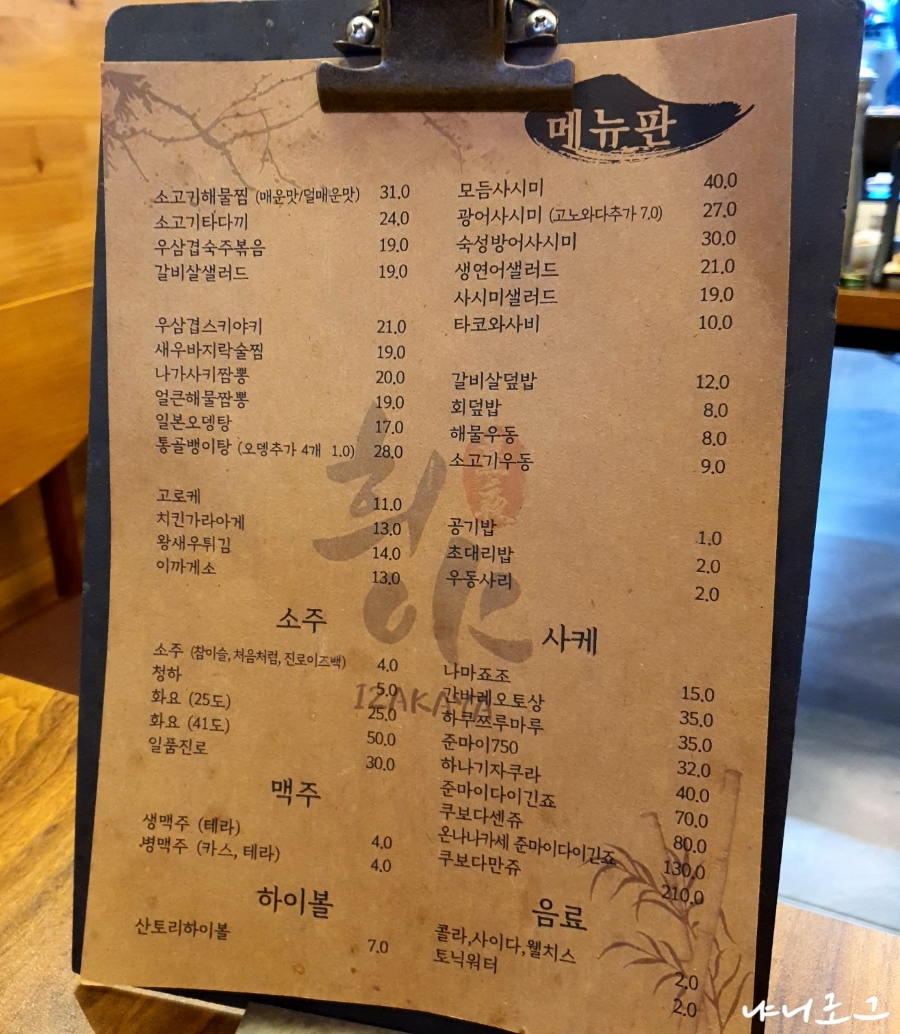 메뉴판
소고기해물찜 (매운맛/덜매운맛) 31.0
소고기타다끼 24.0
우삼겹숙주볶음 19.0
갈비살샐러드 19.0
우삼겹스키야키 21.0
새우바지락술찜 19.0
나가사키짬뽕 20.0
얼큰해물짬뽕 19.0
일본오뎅탕 17.0
통골뱅이탕 (오뎅추가 4개 1.0) 28.0
고로케 11.0
치킨가라아게 13.0
왕새우튀김 14.0
이까게소 13.0
소주
소주 (참이슬,처음처럼,진로이즈백) 4.0
청하 5.0
화요 (25도) 25.0
화요 (41도) 50.0
일품진로 30.0
맥주
생맥주 (테라) 4.0
병맥주 (카스, 테라) 4.0
하이볼
산토리하이볼 7.0
모듬사시미 40.0
광어사시미 (고노와다추가 7.0) 27.0
숙성방어사시미 30.0
생연어샐러드 21.0
사시미샐러드 19.0
타코와사비 10.0
갈비살덮밥 12.0
회덮밥 8.0
해물우동 8.0
소고기우동 9.0
공기밥 1.0
초대리밥 2.0
우동사리 2.0
사케
나마죠조 15.0
간바레오토상 35.0
하무쯔루마루 35.0
준마이750 32.0
하나기자쿠라 40.0
준마이다이긴죠 70.0
쿠보다센쥬 80.0
온나나카세 준마이다이긴죠 130.0
쿠보다만쥬 210.0
음료
콜라,사이다,웰치스 2.0
토닉워터 2.0
IZAKAYA
냐니로그